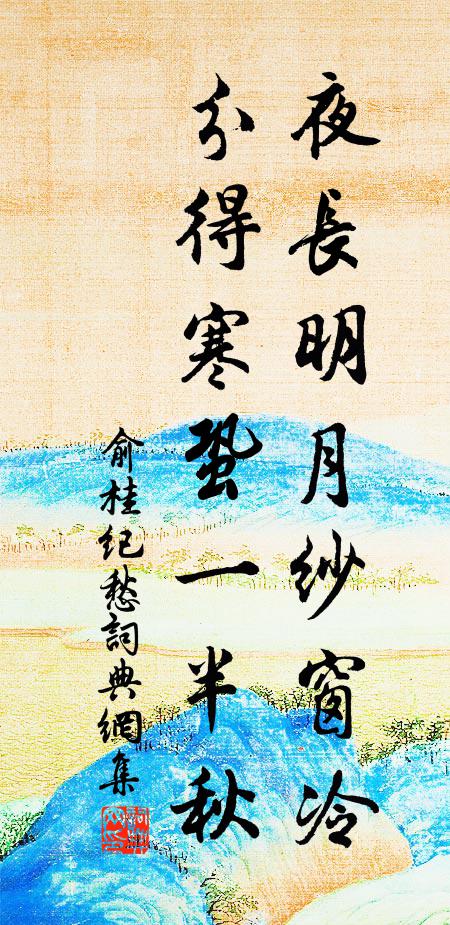 夜長明月紗窗冷
分得寒蛩一半秋
俞桂紀愁詞典網集